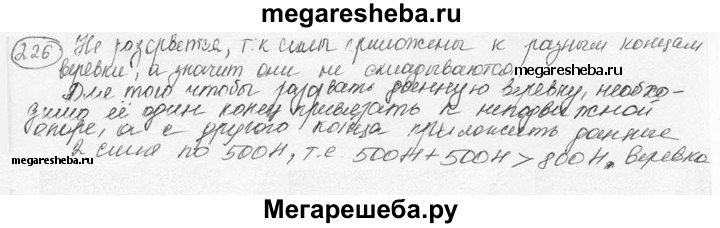 megaresheba.ru
226 Не разорвется, т.к силы приложены к разным концам
веревки, а значит они не складываются.
megaresheba.ru
Для того чтобы разорвать данную веревку, необхо-
димо её один конец привязать к неподвижной
опоре, а с другого конца приложить данные
megaresheba.ru
2 силы по 500Н, т.е. 500Н+500Н > 800Н. Веревка
megaresheba.ru
Мегарешеба.ру